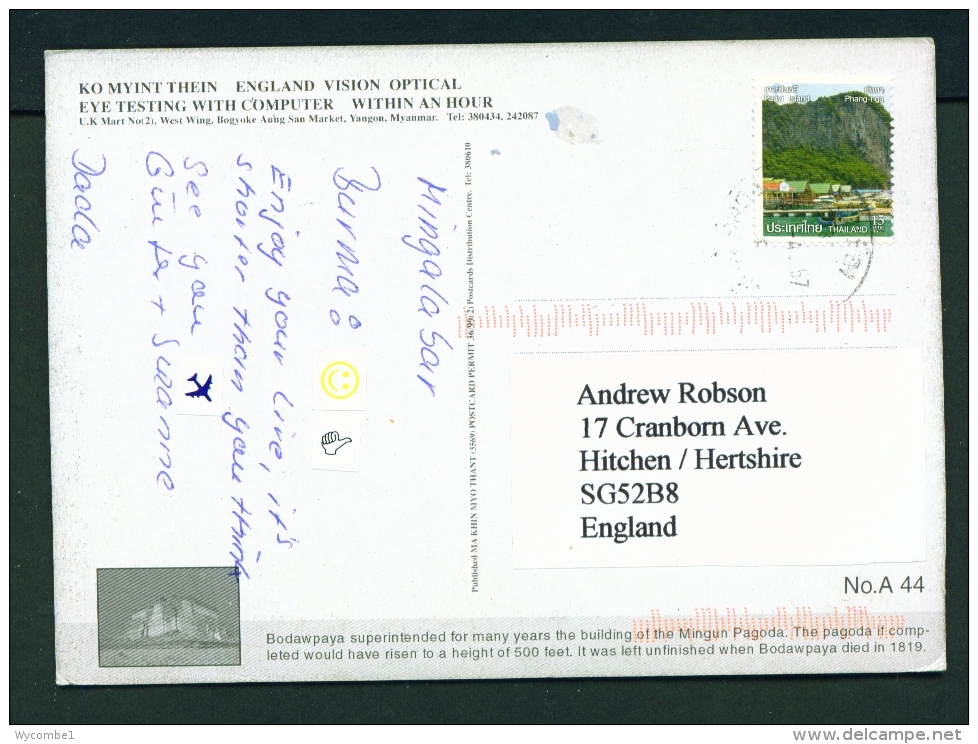 KO MYINT THEIN ENGLAND VISION OPTICAL
EYE TESTING WITH COMPUTER WITHIN AN HOUR
U.K Mart No(2), West Wing, Bogyoke Aung San Market, Yangon, Myanmar. Tel: 380434, 242087
Mingala bar
Burma
Enjoy your live, it's
shorter then you think
See you
+ Susanne
Published MA KHIN MYO THANT (3569) POSTCARD PERMIT 36/99(2) Postcards Distribution Centre. Tel: 380610
island
พังงา
Phang-nga
ประเทศไทย THAILAND
15
Andrew Robson
17 Cranborn Ave.
Hitchen / Hertshire
SG52B8
England
No.A 44
Bodawpaya superintended for many years the building of the Mingun Pagoda. The pagoda if comp-
leted would have risen to a height of 500 feet. It was left unfinished when Bodawpaya died in 1819.
Wycombe1